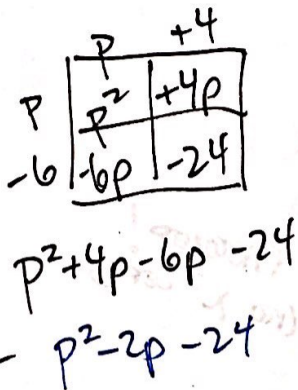 p +4
p p² +4p
-6 -6p -24
p²+4p-6p-24
- p²-2p-24